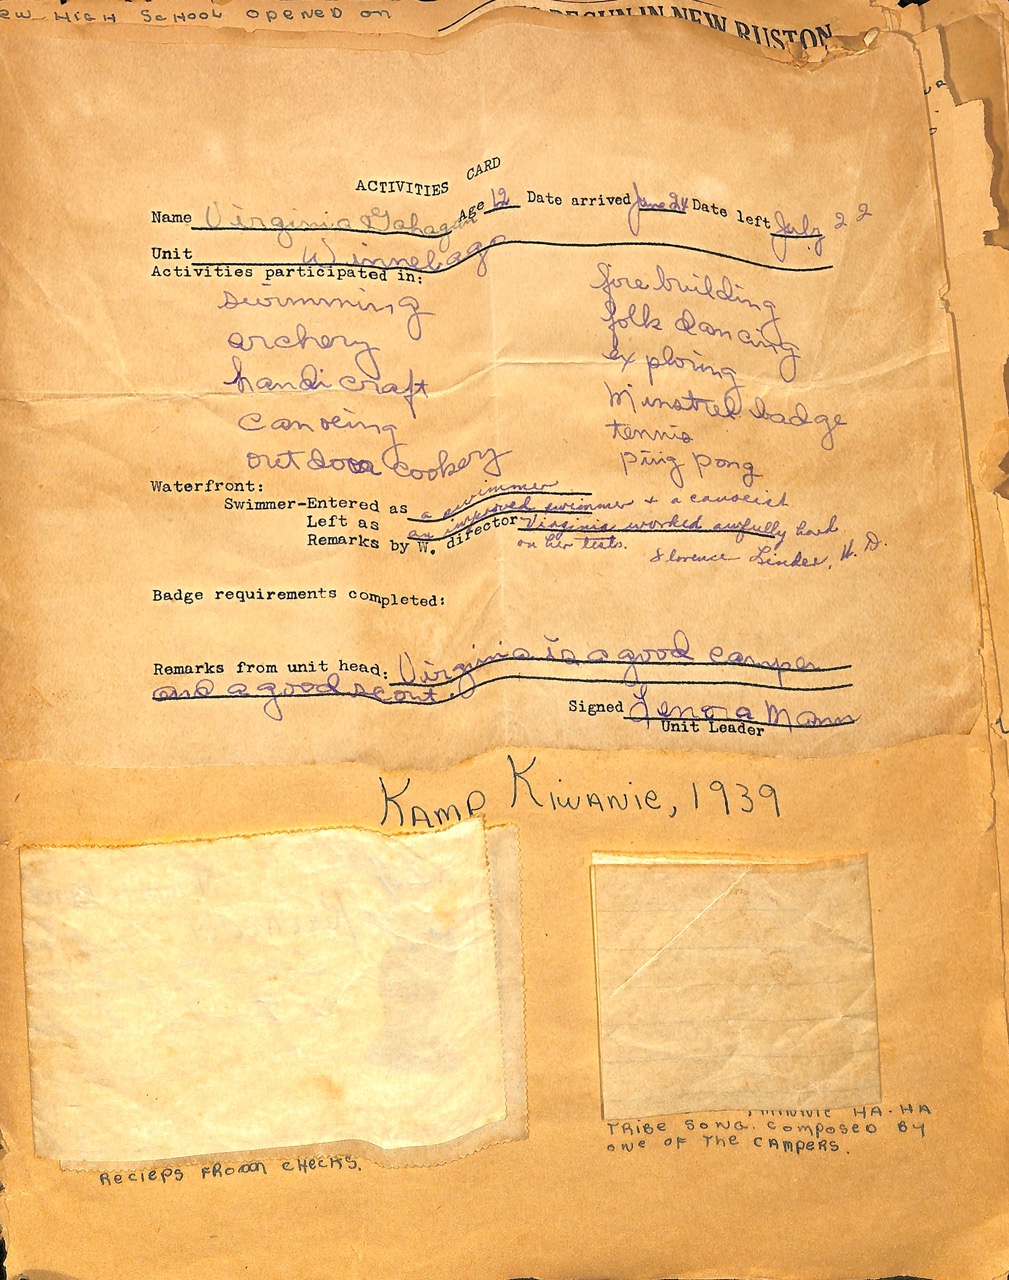 EW HIGH SCHOOL OPENED ON
BEGUN IN NEW RUSTON
ACTIVITIES CARD
Name Virginia Gahagan Age 12 Date arrived June 24 Date left July 22
Unit Winnebago
Activities participated in:
swimming fire building
archery folk dancing
handicraft exploring
canoeing Minstrel badge
outdoor cookery tennis
ping pong
Waterfront:
Swimmer-Entered as a swimmer
Left as an improved swimmer + a canoeist
Remarks by W. director Virginia worked awfully hard
on her tests. Florence Linder, W. D.
Badge requirements completed:
Remarks from unit head: Virginia is a good camper
and a good scout.
Signed Lenora Mann
Unit Leader
KAMP KIWANIE, 1939
MINNIE HA-HA
TRIBE SONG. COMPOSED BY
ONE OF THE CAMPERS.
RECIEPS FROM CHECKS.